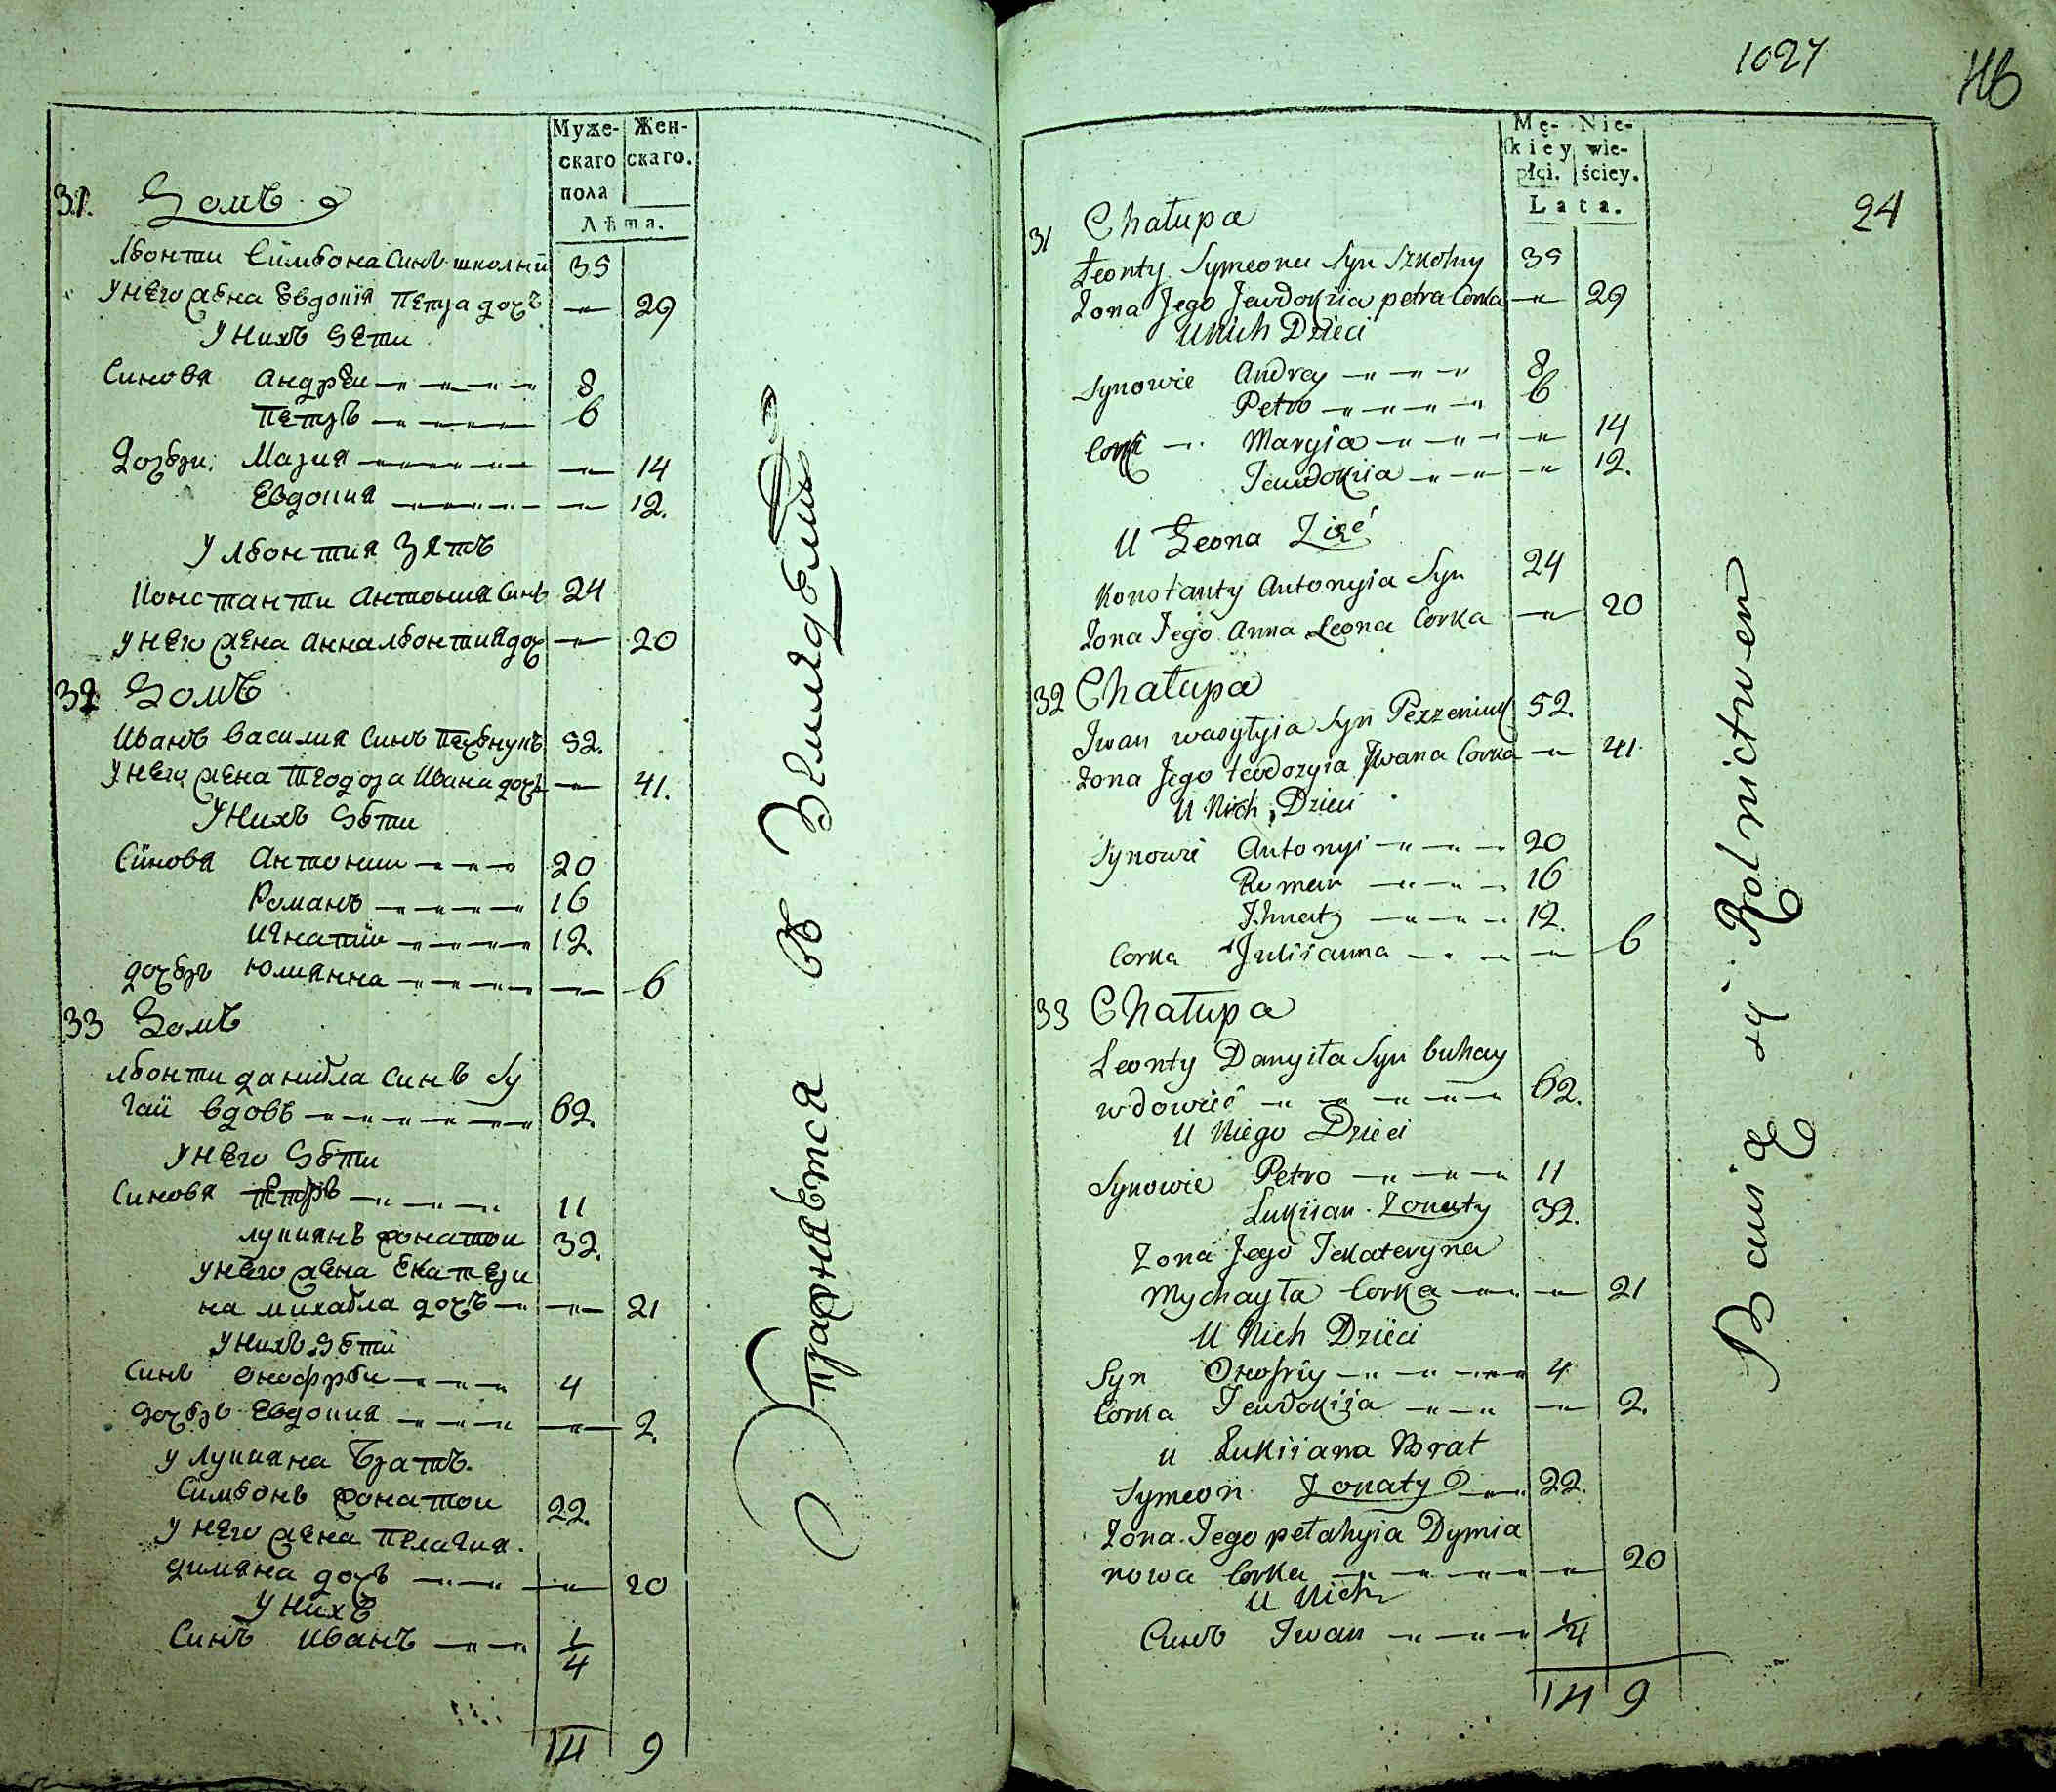 Муже-
скаго
пола
Жен-
скаго.
Лѣта.
31. Домъ
Лвонти Симвона Синъ школни 35
У него жена Евдокїя Петра дочъ 29
У нихъ Дети
Синовя Андрѣи 8
Петръ 6
Дочѣри: Мария 14
Евдокия 12.
У Лвонтия Зять
Константи Антония Синъ 24
У него жена Анна Лвонтия доч 20
32 Домъ
Иванъ Василия Синъ 52.
У него жена Теодора Ивана дочъ 41.
У нихъ Дѣти
Синовя Антонии 20
Романъ 16
Игнатїи 12.
дочѣръ Юлианна 6
33 Домъ
Лвонти Данивла Синъ Бу
гаи вдовъ 62.
У него Дѣти
Синовя Петръ 11
Лукианъ жонатои 32.
У него жена Екатери
на Михавла дочъ 21
У нихъ Дѣти
Синъ Онофрѣи 4
Дочѣръ Евдокия 2.
У Лукиана Братъ.
Симвонъ жонатои 22.
У него жена Пелагия.
Димяна дочъ 20
У нихъ
Синъ Иванъ 1/4
14 9
Упражнявтся въ Земледѣлии
1027
24
Mę-
skiey
płci.
Nie-
wie-
ściey.
Lata.
31 Chałupa
Leonty Symeona Syn Szkolny 35
Zona Jego Jewdokiia petra Corka 29
U Nich Dzieci
Synowie Andrey 8
Petro 6
Corki Maryia 14
Jewdokiia 12.
U Leona Zięć
Konstanty Antonyia Syn 24
Zona Jego Anna Leona Corka 20
32 Chałupa
Jwan wasylyia Syn 52.
Zona Jego teodozyia Jwana Corka 41
U Nich Dzieci
Synowie Antonyi 20
Roman 16
Jhnaty 12.
Corka Juliianna 6
33 Chałupa
Leonty Danyiła Syn buhay
wdowieć 62.
U Niego Dzieci
Synowie Petro 11
Lukiian Zonaty 32.
Zona Jego Jekateryna
Mychayła Corka 21
U Nich Dzieci
Syn Onofriy 4
Corka Jewdokiia 2.
u Lukiiana Brat
Symeon Zonaty 22.
Zona Jego pełahyia Dymia
nowa Corka 20
U Nich
Синъ Jwan 1/4
14 9
Bawią się Rolnictwem